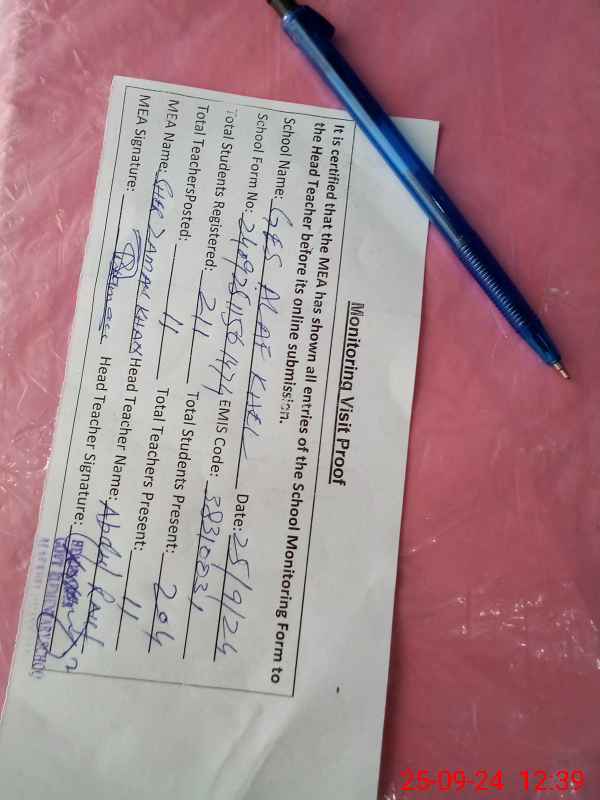 Monitoring Visit Proof
It is certified that the MEA has shown all entries of the School Monitoring Form to
the Head Teacher before its online submission.
School Name: GES ALAF KHEL Date: 25/9/24
School Form No: 2409251156474 EMIS Code:
Total Students Registered: 211 Total Students Present: 204
Total TeachersPosted: 11 Total Teachers Present: 11
MEA Name: SHER ZAMAN KHAN Head Teacher Name: Abdul Rauf
MEA Signature: Head Teacher Signature:
25-09-24 12:39